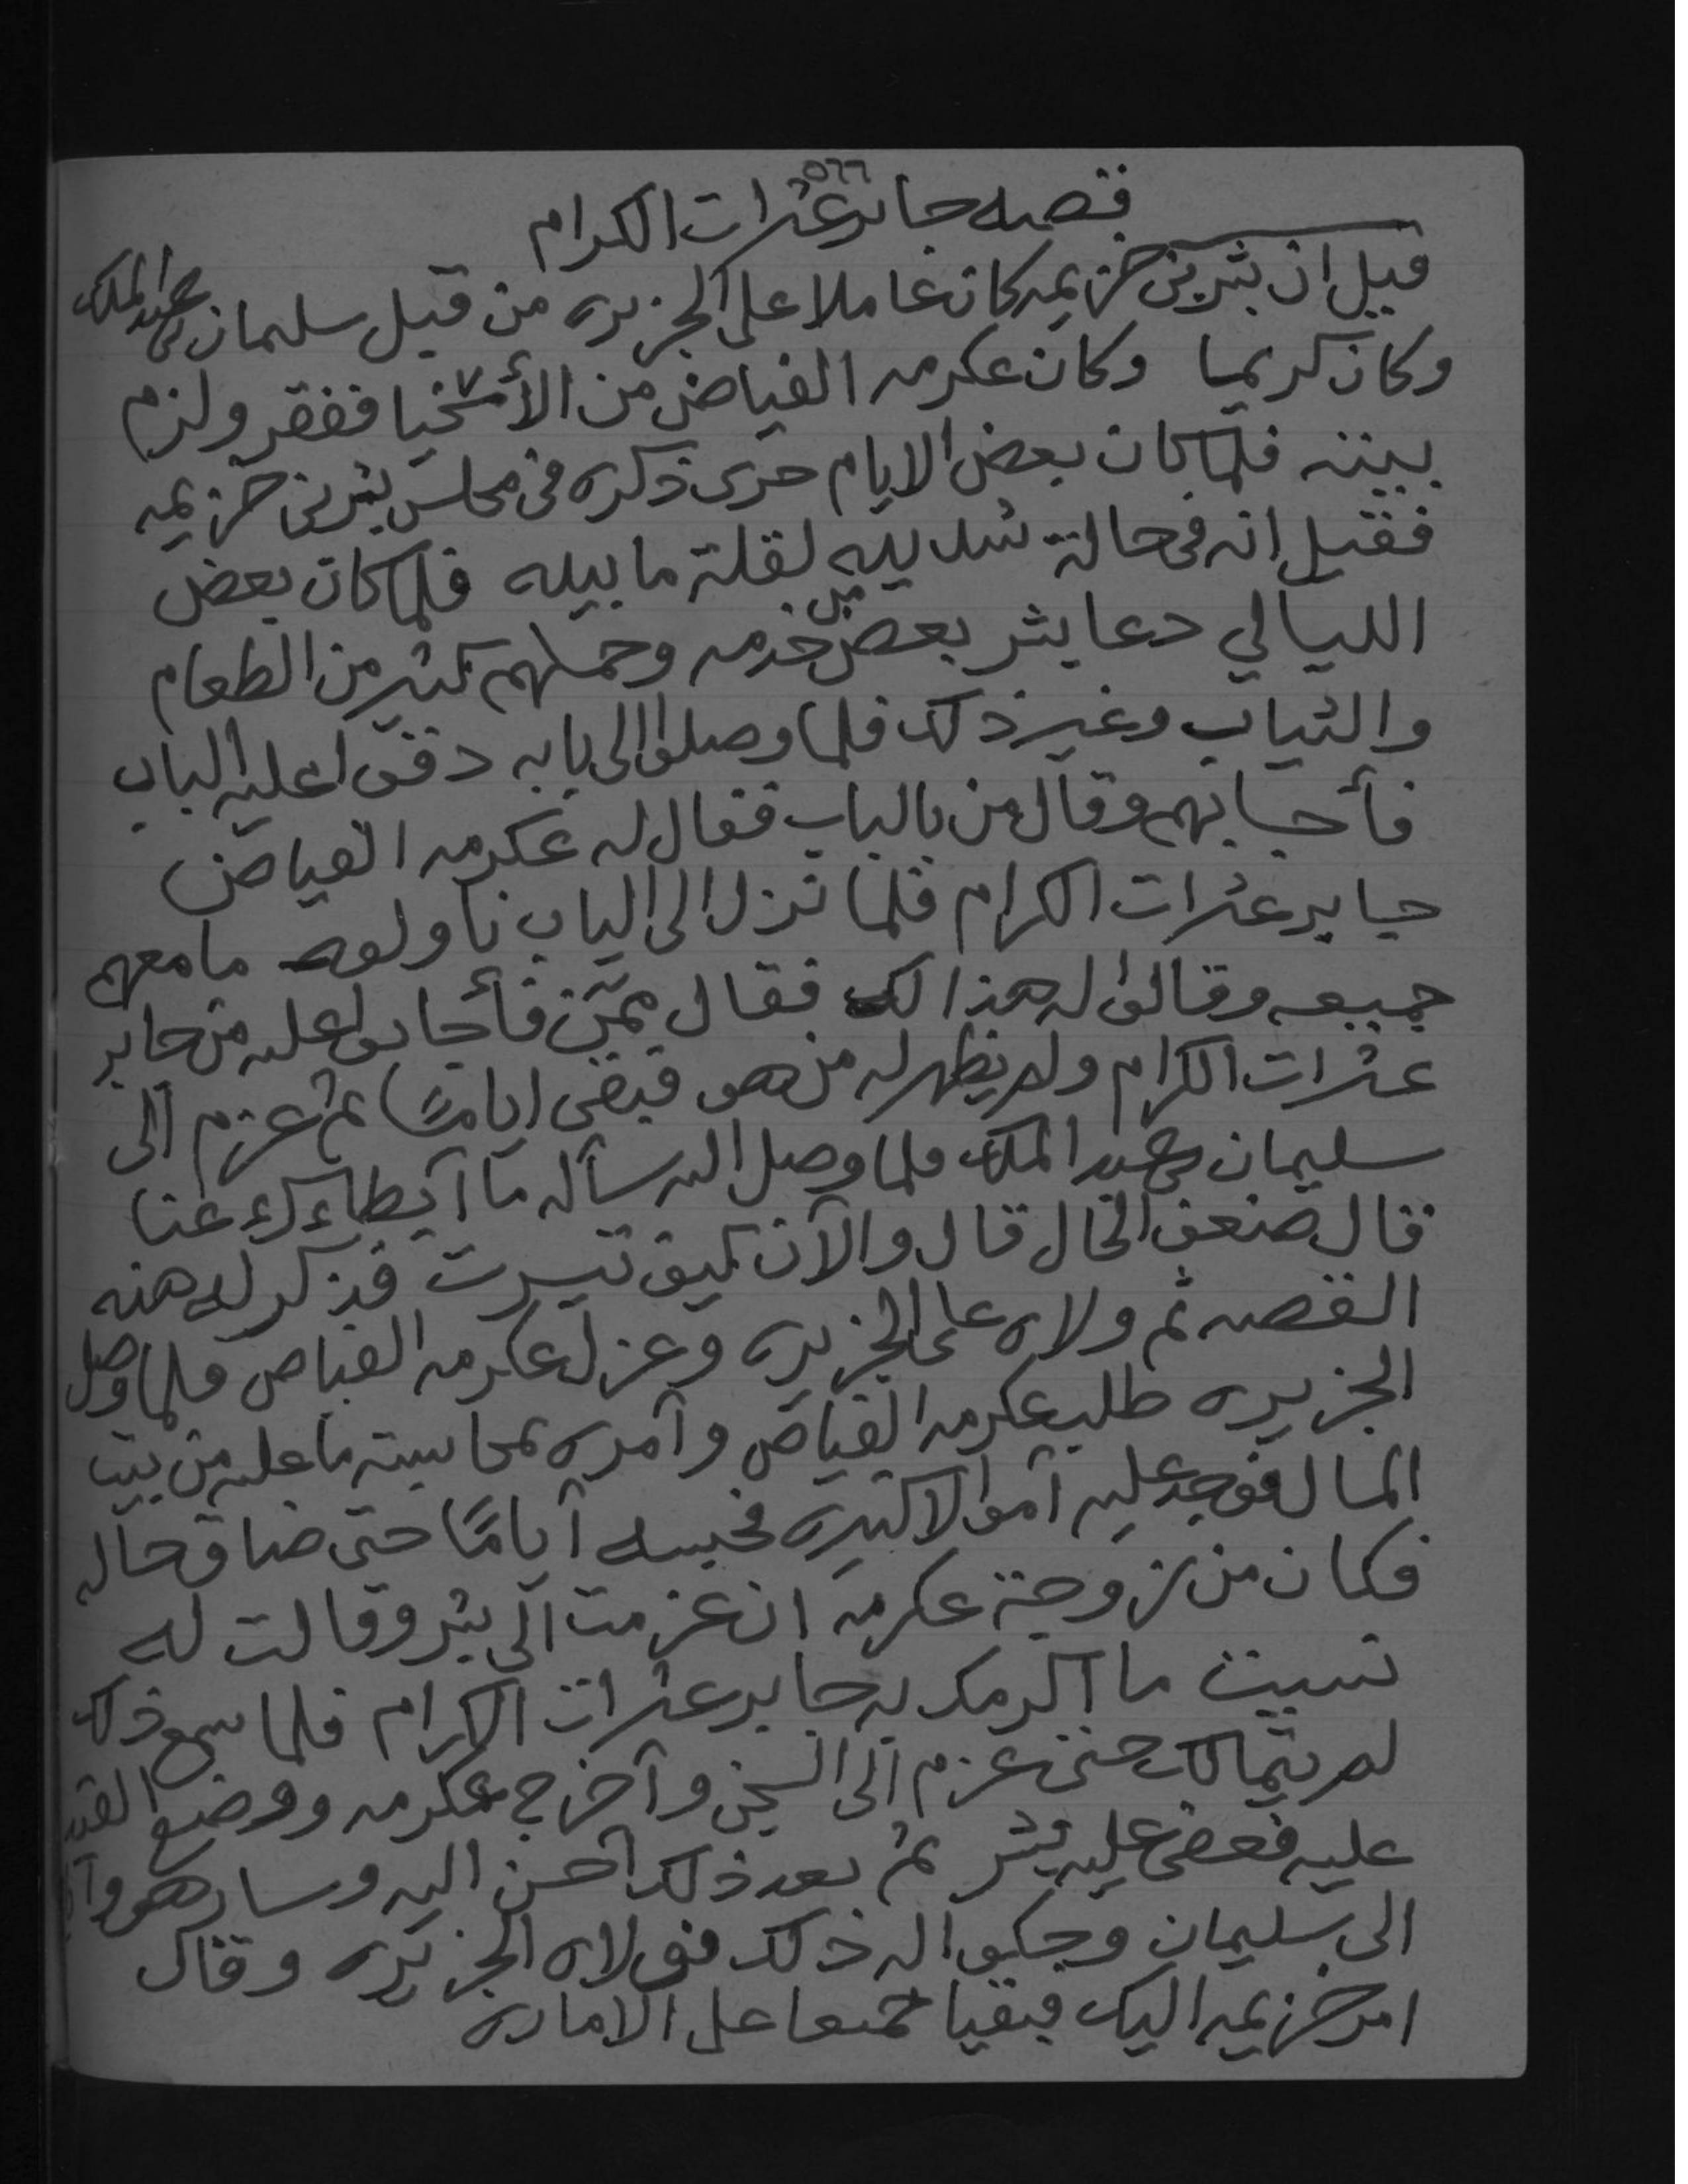 ٥٦٦
قصه جابر عثرات الكرام
قيل ان بشر بن خزيمه كان عاملا على الجزيره من قبل سليمان بن عبد الملك
وكان كريما وكان عكرمه الفياض من الأسخيا ففقر ولزم
بيته فلما كان بعض الايام جرى ذكره في مجلس بشر بن خزيمه
فقيل انه في حالة شديده لقلة ما بيده فلما كان بعض
الليالي دعا بشر بعض من خدمه وحملهم كثير من الطعام
والثياب وغير ذلك فلما وصلوا الى بابه دقوا عليه الباب
فأجابهم وقال من بالباب فقال له عكرمه الفياض
جابر عثرات الكرام فلما نزل الى الباب ناولوه ما معهم
جميعه وقالوا له هذا لك فقال ممن فأجابوا عليه من جابر
عثرات الكرام ولم يظهر له من هو فبقي اياماً ثم عزم الى
سليمان بن عبد الملك فلما وصل اليه سأله ما أبطاءك عنا
قال ضعف الحال قال والآن كيف تيسرت فذكر له هذه
القصه ثم ولاه على الجزيره وعزل عكرمه الفياض فلما وصل
الجزيره طلب عكرمه الفياض وأمره بمحاسبة ما عليه من بيت
المال فوجد عليه أموالا كثيره فحبسه أياماً حتى ضاق حاله
فكان من زوجة عكرمه ان عزمت الى بشر وقالت له
نسيت ما أكرمك به جابر عثرات الكرام فلما سمع ذلك
لم يتمالك حتى عزم الى السجن وأخرج عكرمه ووضع القيد
عليه فعضى عليه بشر ثم بعد ذلك أحسن اليه وسار هو
الى سليمان وحكوا له ذلك فولاه الجزيره وقال
امر خزيمه اليك فبقيا جميعا على الاماره